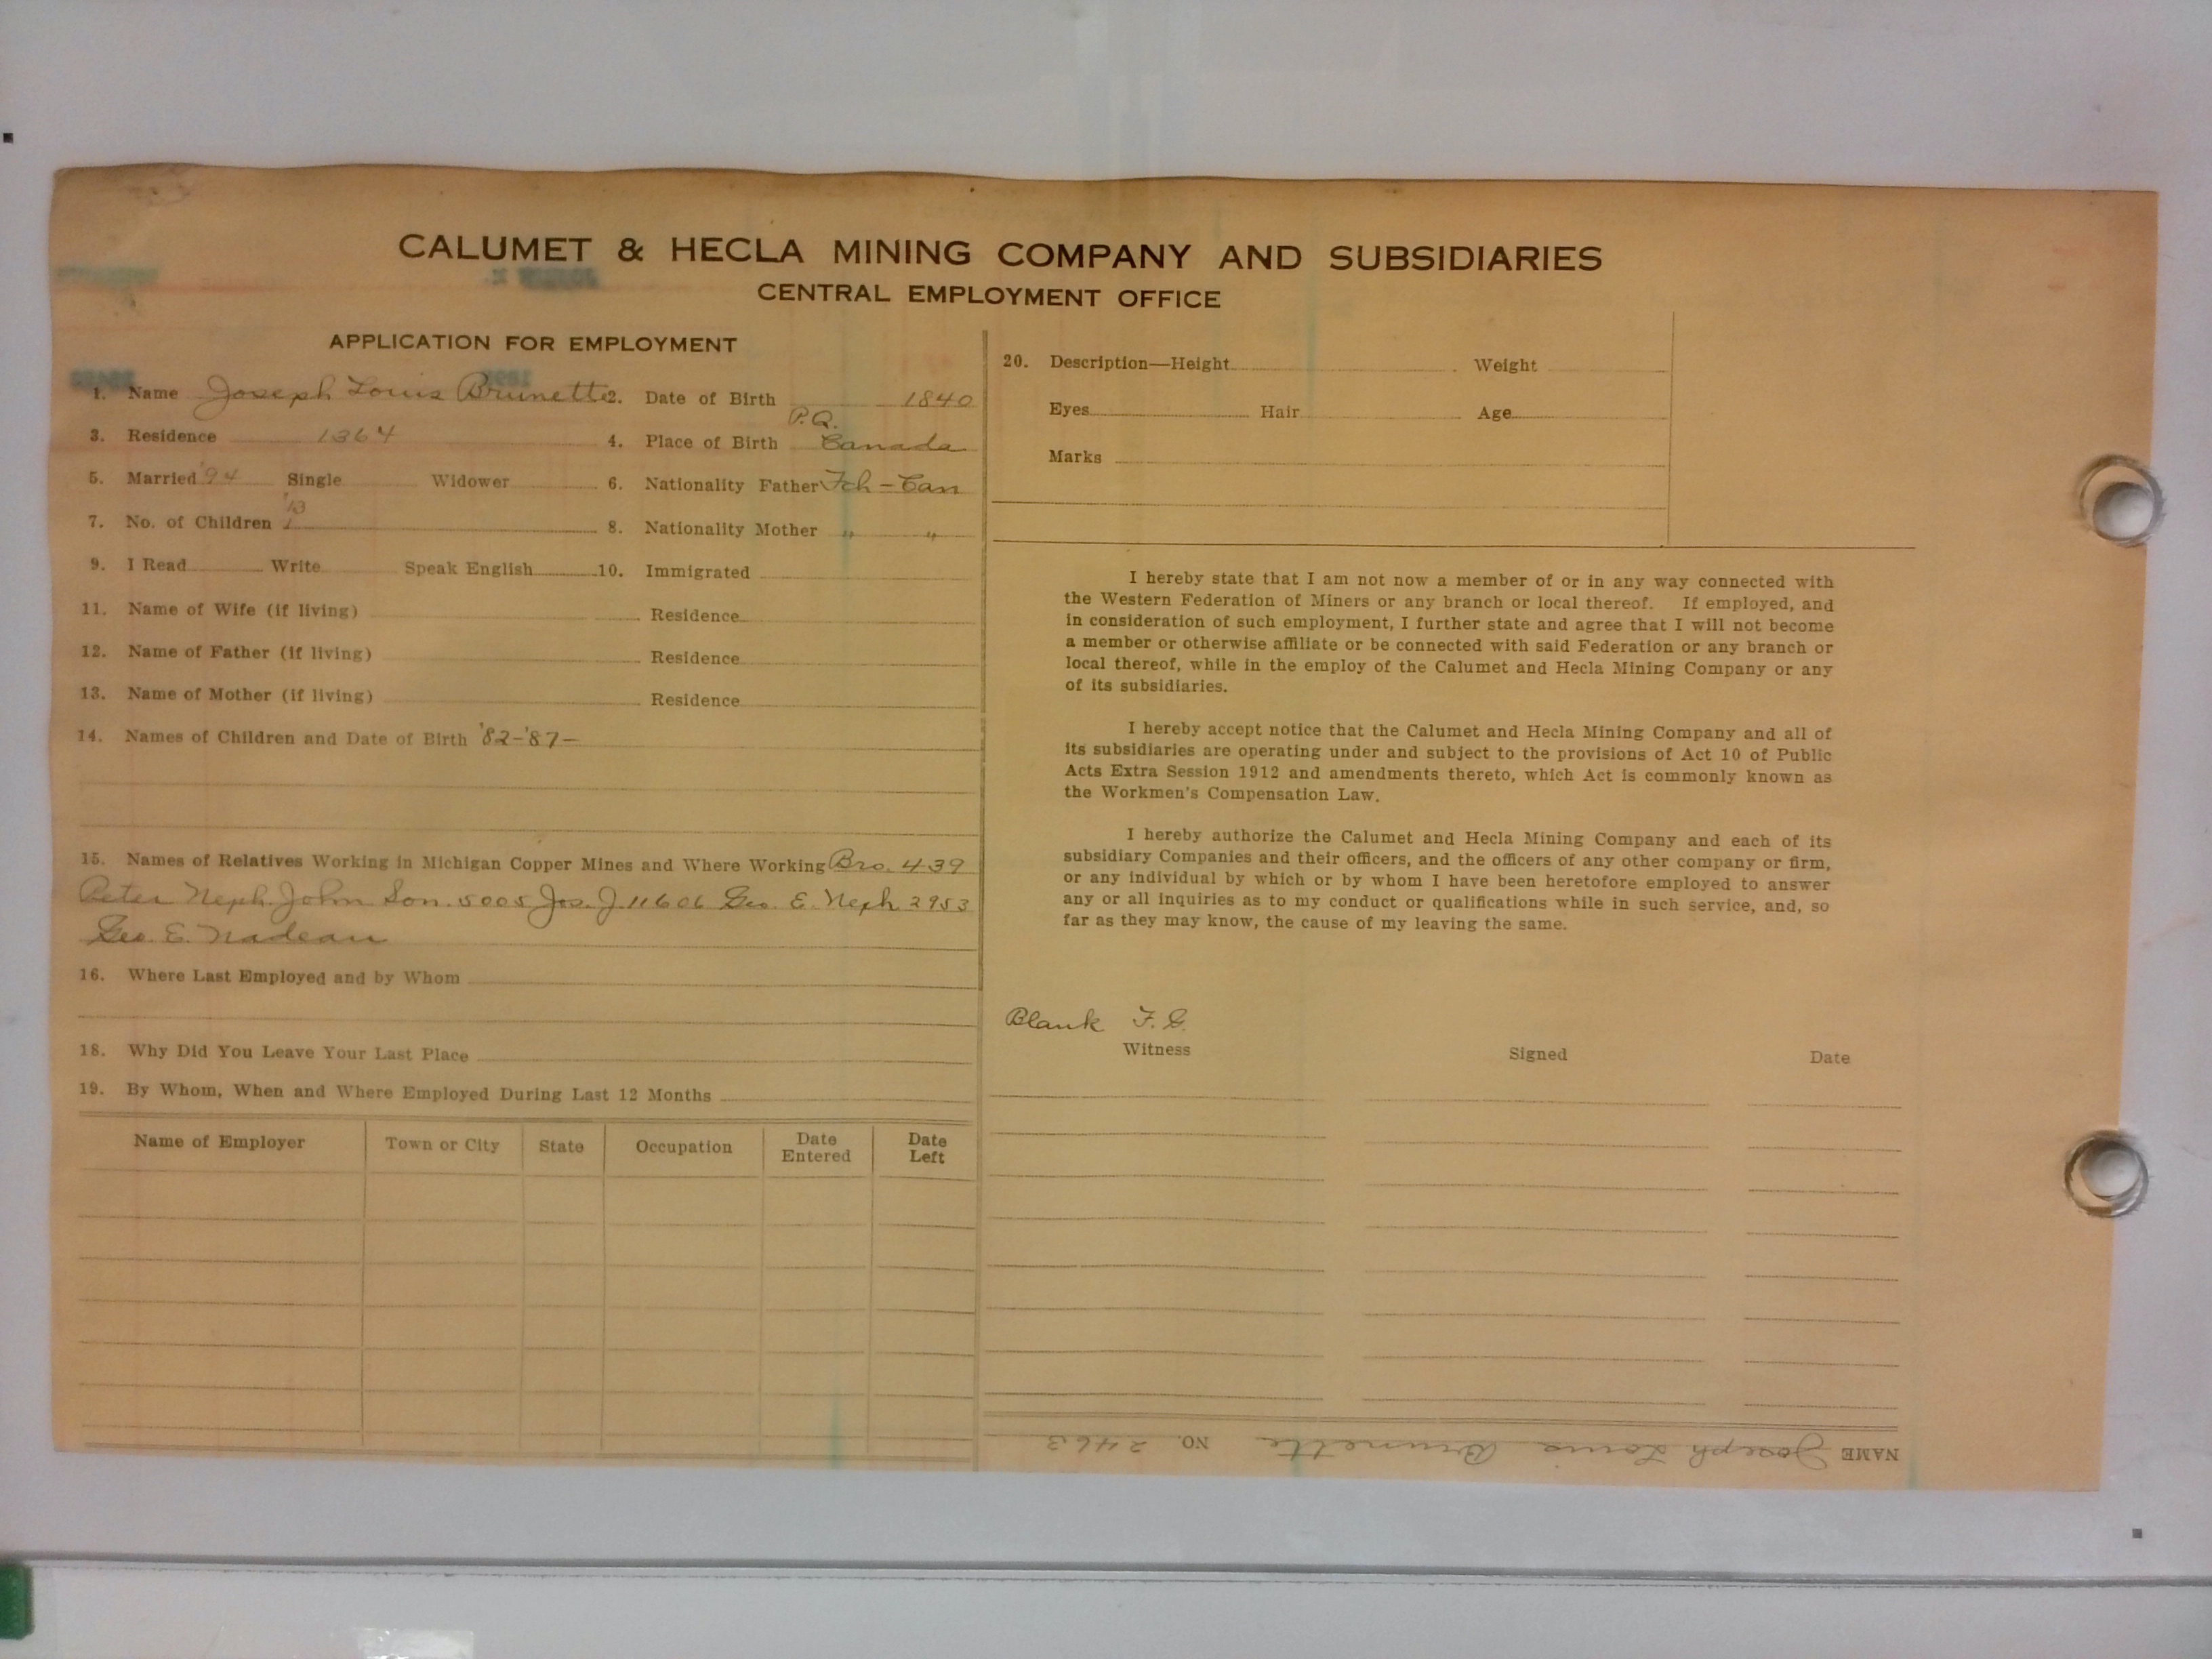 CALUMET & HECLA MINING COMPANY AND SUBSIDIARIES
CENTRAL EMPLOYMENT OFFICE
APPLICATION FOR EMPLOYMENT
1. Name Joseph Louis Brunette 2. Date of Birth 1840
3. Residence 1364 4. Place of Birth P.Q. Canada
5. Married '94 Single Widower 6. Nationality Father Fch-Can
7. No. of Children '13 1 8. Nationality Mother " "
9. I Read Write Speak English 10. Immigrated
11. Name of Wife (if living) Residence
12. Name of Father (if living) Residence
13. Name of Mother (if living) Residence
14. Names of Children and Date of Birth '82-'87-
15. Names of Relatives Working in Michigan Copper Mines and Where Working Bro. 439
Peter Neph. John Son. 5005 Jos. J. 11606 Geo. E. Neph 2953
Geo. E. Nadeau
16. Where Last Employed and by Whom
18. Why Did You Leave Your Last Place
19. By Whom, When and Where Employed During Last 12 Months
Name of Employer Town or City State Occupation Date Entered Date Left
20. Description—Height Weight
Eyes Hair Age
Marks
I hereby state that I am not now a member of or in any way connected with
the Western Federation of Miners or any branch or local thereof. If employed, and
in consideration of such employment, I further state and agree that I will not become
a member or otherwise affiliate or be connected with said Federation or any branch or
local thereof, while in the employ of the Calumet and Hecla Mining Company or any
of its subsidiaries.
I hereby accept notice that the Calumet and Hecla Mining Company and all of
its subsidiaries are operating under and subject to the provisions of Act 10 of Public
Acts Extra Session 1912 and amendments thereto, which Act is commonly known as
the Workmen's Compensation Law.
I hereby authorize the Calumet and Hecla Mining Company and each of its
subsidiary Companies and their officers, and the officers of any other company or firm,
or any individual by which or by whom I have been heretofore employed to answer
any or all inquiries as to my conduct or qualifications while in such service, and, so
far as they may know, the cause of my leaving the same.
Blank F.G.
Witness Signed Date
NAME Joseph Louis Brunette NO. 2463